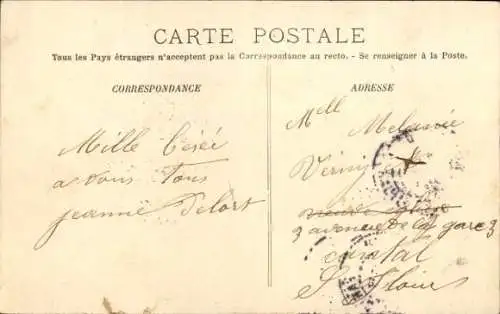 CARTE POSTALE
Tous les Pays étrangers n'acceptent pas la Correspondance au recto. - Se renseigner à la Poste.
CORRESPONDANCE
Mille
a vous tous
Jeanne Delort
ADRESSE
Mell
Melanie
3 avenue de la gare 3
cantal
S Flour